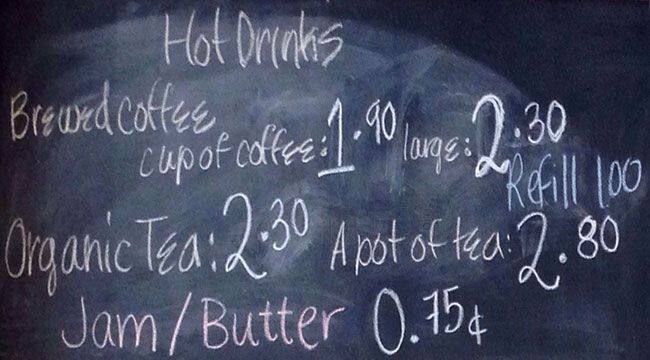 Hot Drinks
Brewed coffee
cup of coffee: 1.90 large: 2.30
Refill 1.00
Organic Tea: 2.30 A pot of tea: 2.80
Jam/Butter 0.75¢